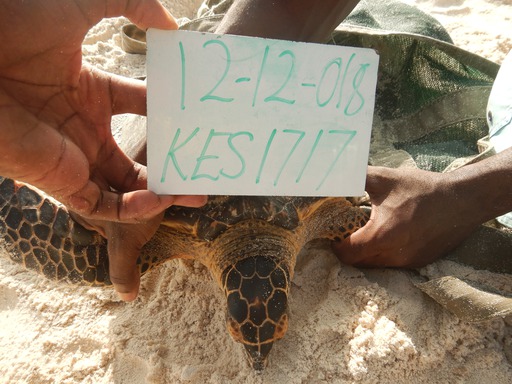 12-12-018
KES1717